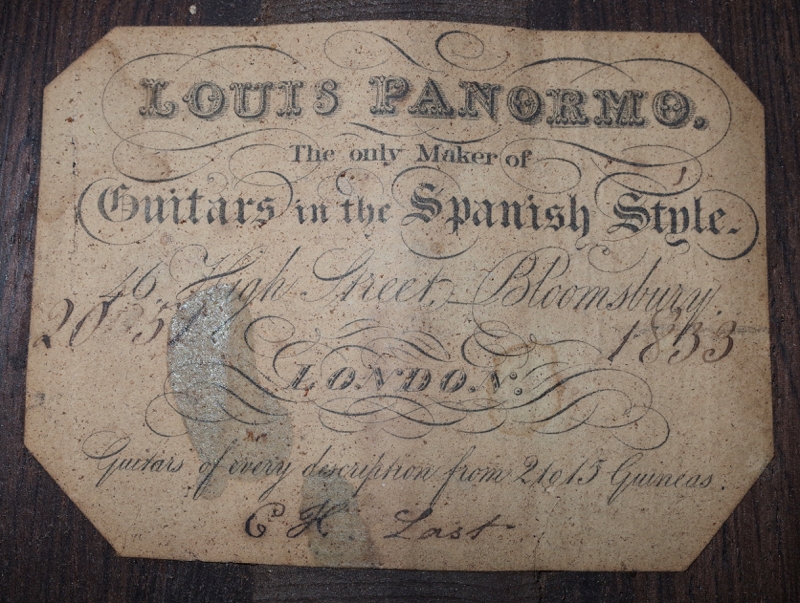 LOUIS PANORMO.
The only Maker of
Guitars in the Spanish Style.
46 High Street, Bloomsbury.
1833
LONDON.
Guitars of every description from 2 to 15 Guineas.
E H Last